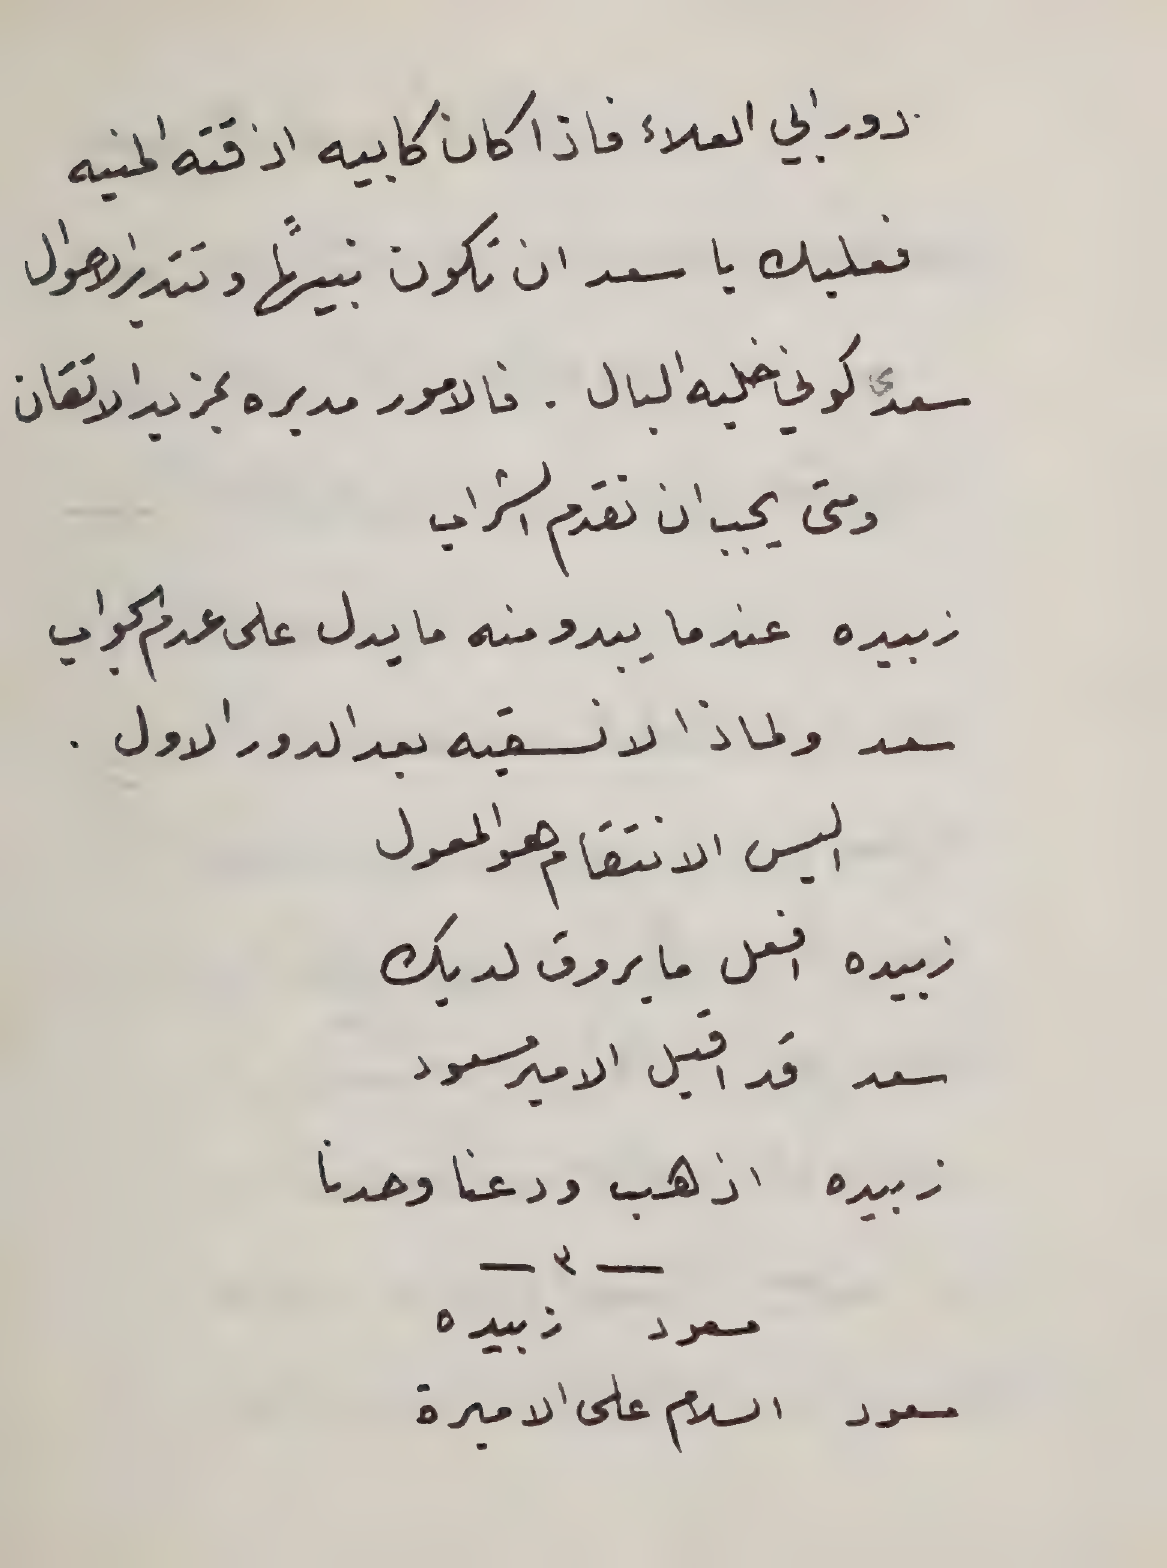 دور ابي العلاء فاذا كان كابيه اذقته المنيه
فعليك يا سعد ان تكون نبيهًا وتتدبر الاحوال
سعد كوني خليه البال . فالامور مدبره بمزيد الاتقان
ومتى يجب ان نقدم الشراب
زبيده عندما يبدو منه ما يدل على عدم الجواب
سعد ولماذا لا نسقيه بعد الدور الاول .
اليس الانتقام هو المعول
زبيده افعل ما يروق لديك
سعد قد اقبل الامير مسعود
زبيده اذهب ودعنا وحدنا
— ٣ —
مسعود زبيده
مسعود السلام على الاميرة